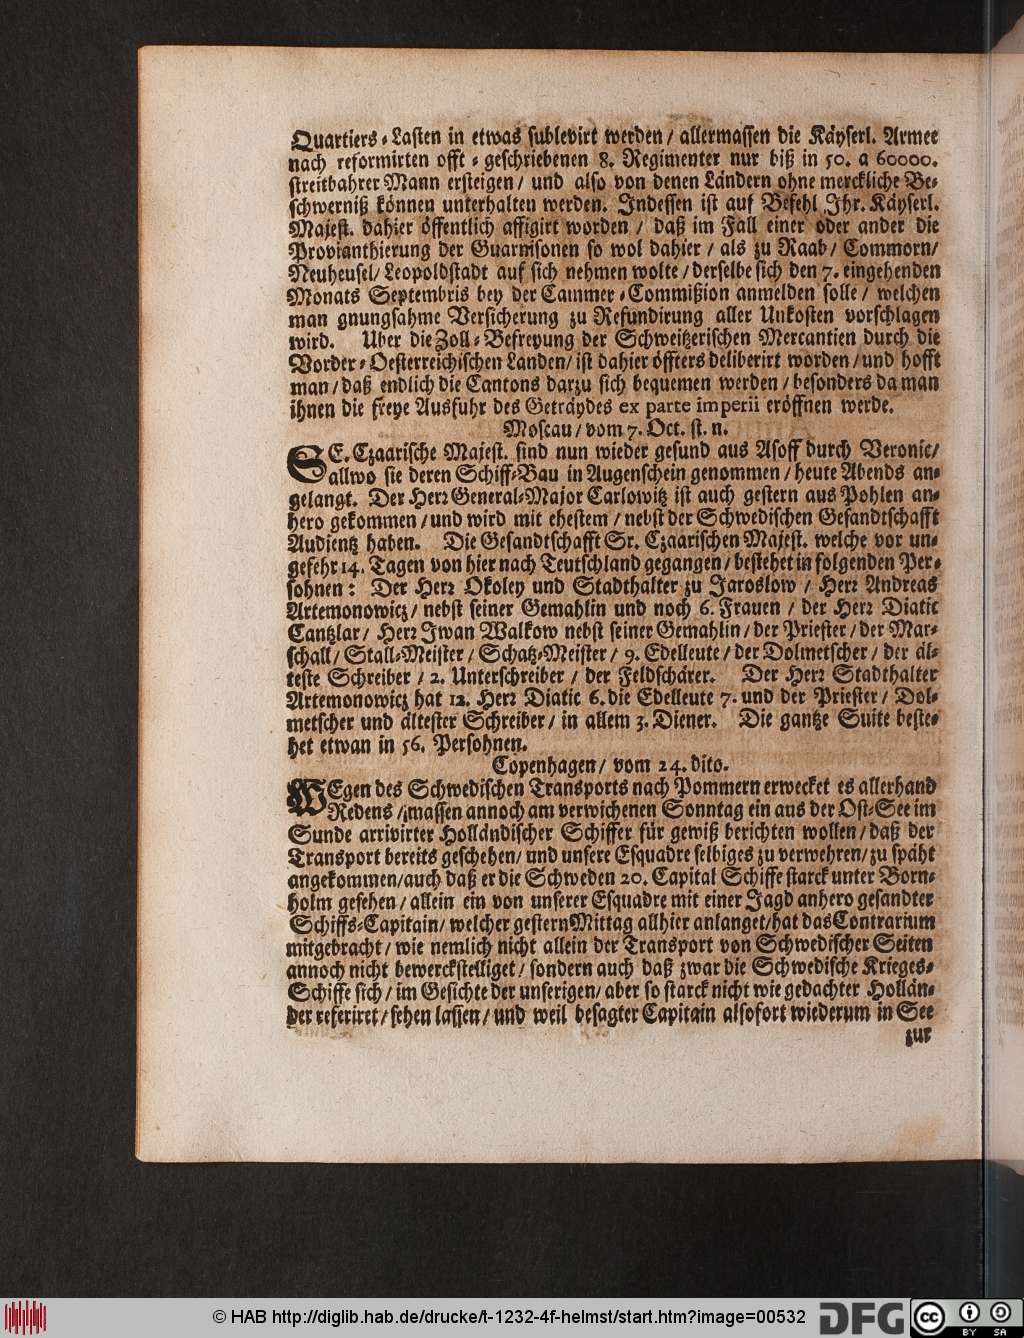 Quartiers-Lasten in etwas sublevirt werden / allermassen die Käyserl. Armee
nach reformirten offt-geschriebenen 8. Regimenter nur biß in 50. a 60000.
streitbahrer Mann ersteigen / und also von denen Ländern ohne merckliche Be-
schwerniß können unterhalten werden. Indessen ist auf Befehl Ihr. Käyserl.
Majest. dahier öffentlich affigirt worden / daß im Fall einer oder ander die
Provianthierung der Guarnisonen so wol dahier / als zu Raab / Commorn /
Neuheusel / Leopoldstadt auf sich nehmen wolte / derselbe sich den 7. eingehenden
Monats Septembris bey der Cammer-Commißion anmelden solle / welchen
man gnungsahme Versicherung zu Refundirung aller Unkosten vorschlagen
wird. Uber die Zoll-Befreyung der Schweitzerischen Mercantien durch die
Vorder-Oesterreichischen Landen / ist dahier öffters deliberirt worden / und hofft
man / daß endlich die Cantons darzu sich bequemen werden / besonders da man
ihnen die freye Ausfuhr des Geträydes ex parte imperii eröffnen werde.
Moscau / vom 7. Oct. st. n.
SE. Czaarische Majest. sind nun wieder gesund aus Asoff durch Veronic /
allwo sie deren Schiff-Bau in Augenschein genommen / heute Abends an-
gelangt. Der Herr General-Major Carlowitz ist auch gestern aus Pohlen an-
hero gekommen / und wird mit ehestem / nebst der Schwedischen Gesandtschafft
Audientz haben. Die Gesandtschafft Sr. Czaarischen Majest. welche vor un-
gefehr 14. Tagen von hier nach Teutschland gegangen / bestehet in folgenden Per-
sohnen: Der Herr Okoley und Stadthalter zu Jaroslow / Herr Andreas
Artemonowicz / nebst seiner Gemahlin und noch 6. Frauen / der Herr Diatic
Cantzlar / Herr Iwan Walkow nebst seiner Gemahlin / der Priester / der Mar-
schall / Stall-Meister / Schatz-Meister / 9. Edelleute / der Dolmetscher / der äl-
teste Schreiber / 2. Unterschreiber / der Feldschärer. Der Herr Stadthalter
Artemonowicz hat 12. Herr Diatic 6. die Edelleute 7. und der Priester / Dol-
metscher und ältester Schreiber / in allem 3. Diener. Die gantze Suite beste-
het etwan in 56. Persohnen.
Copenhagen / vom 24. dito.
WEgen des Schwedischen Transports nach Pommern erwecket es allerhand
Redens / massen annoch am verwichenen Sonntag ein aus der Ost-See im
Sunde arrivirter Holländischer Schiffer für gewiß berichten wollen / daß der
Transport bereits geschehen / und unsere Esquadre selbiges zu verwehren / zu späht
angekommen / auch daß er die Schweden 20. Capital Schiffe starck unter Born-
holm gesehen / allein ein von unserer Esquadre mit einer Jagd anhero gesandter
Schiffs-Capitain / welcher gestern Mittag allhier anlanget / hat das Contrarium
mitgebracht / wie nemlich nicht allein der Transport von Schwedischer Seiten
annoch nicht bewerckstelliget / sondern auch daß zwar die Schwedische Krieges-
Schiffe sich / im Gesichte der unserigen / aber so starck nicht wie gedachter Hollän-
der referiret / sehen lassen / und weil besagter Capitain alsofort wiederum in See
zur
© HAB http://diglib.hab.de/drucke/t-1232-4f-helmst/start.htm?image=00532 DFG cc BY SA